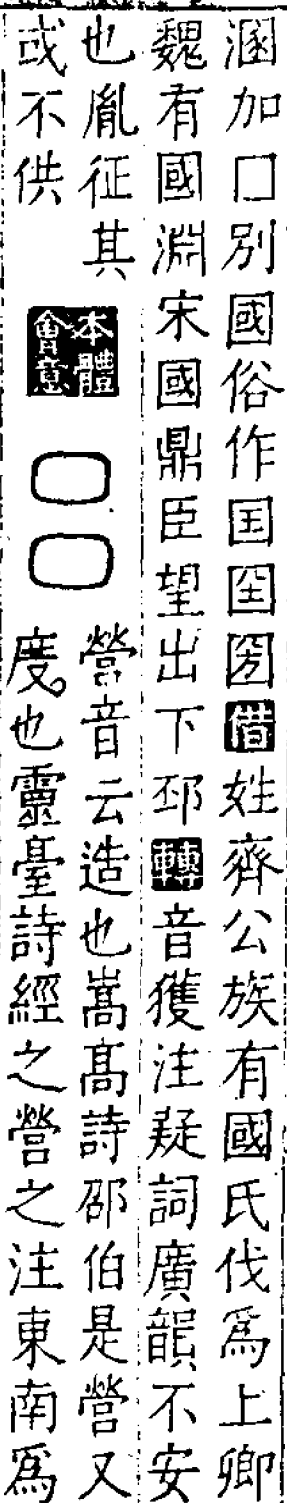 溷加囗別國俗作囯圀借姓齊公族有國氏伐爲上卿
魏有國淵宋國鼎臣望出下邳轉音獲注疑詞廣韻不安
也胤征其
或不供
本體
會意
營音云造也嵩髙詩邵伯是營又
度也靈臺詩經之營之注東南爲